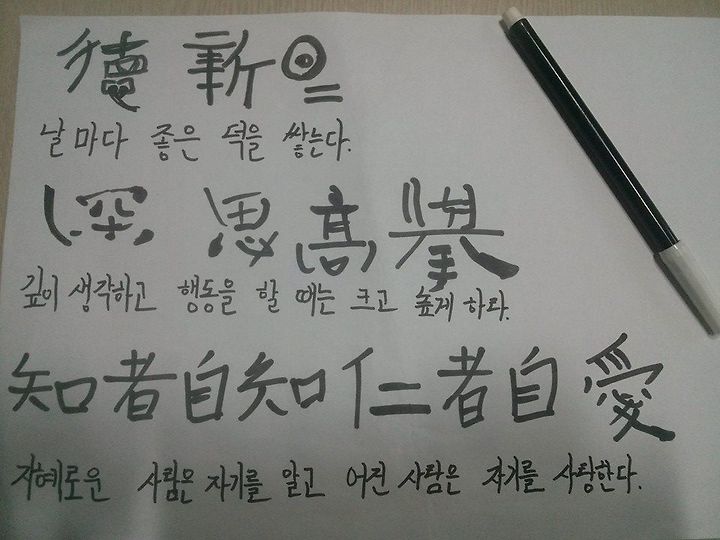 德 新 日=
날마다 좋은 덕을 쌓는다.
深 思 高 擧
깊이 생각하고 행동을 할 때는 크고 높게 하라.
知者自知仁者自愛
지혜로운 사람은 자기를 알고 어진 사람은 자기를 사랑한다.